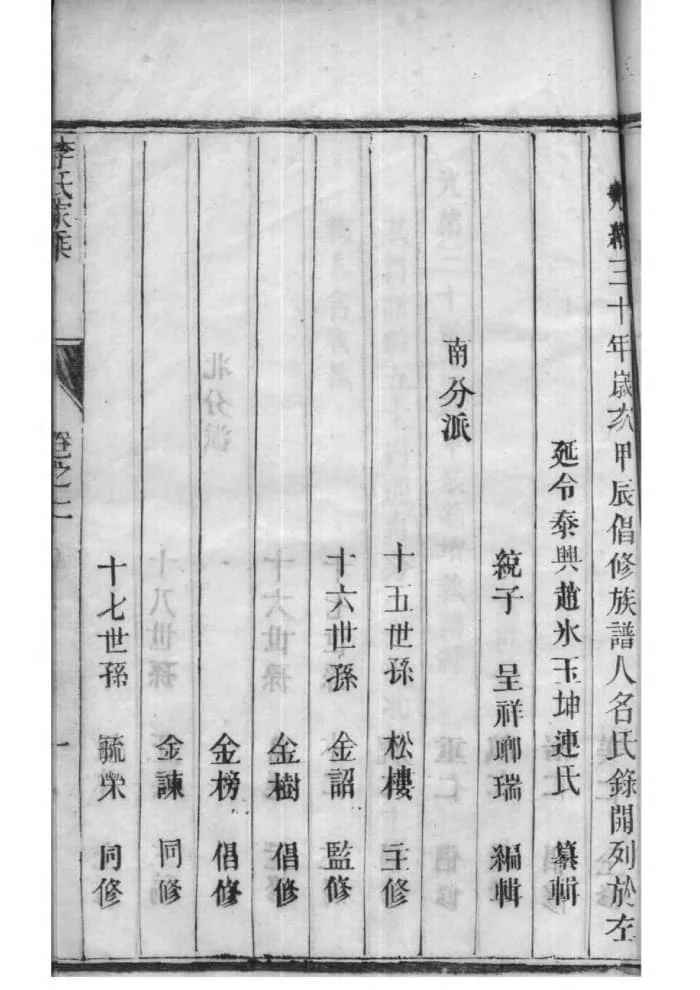 光緒三十年歲次甲辰倡修族譜人名氏錄開列於左
延令泰興趙氷玉坤連氏 纂輯
統子 呈祥卿瑞 編輯
南分派
十五世孫 松樓 主修
十六世孫 金詔 監修
金樹 倡修
金榜 倡修
金諫 同修
十七世孫 毓榮 同修
李氏家乘
卷之一
一